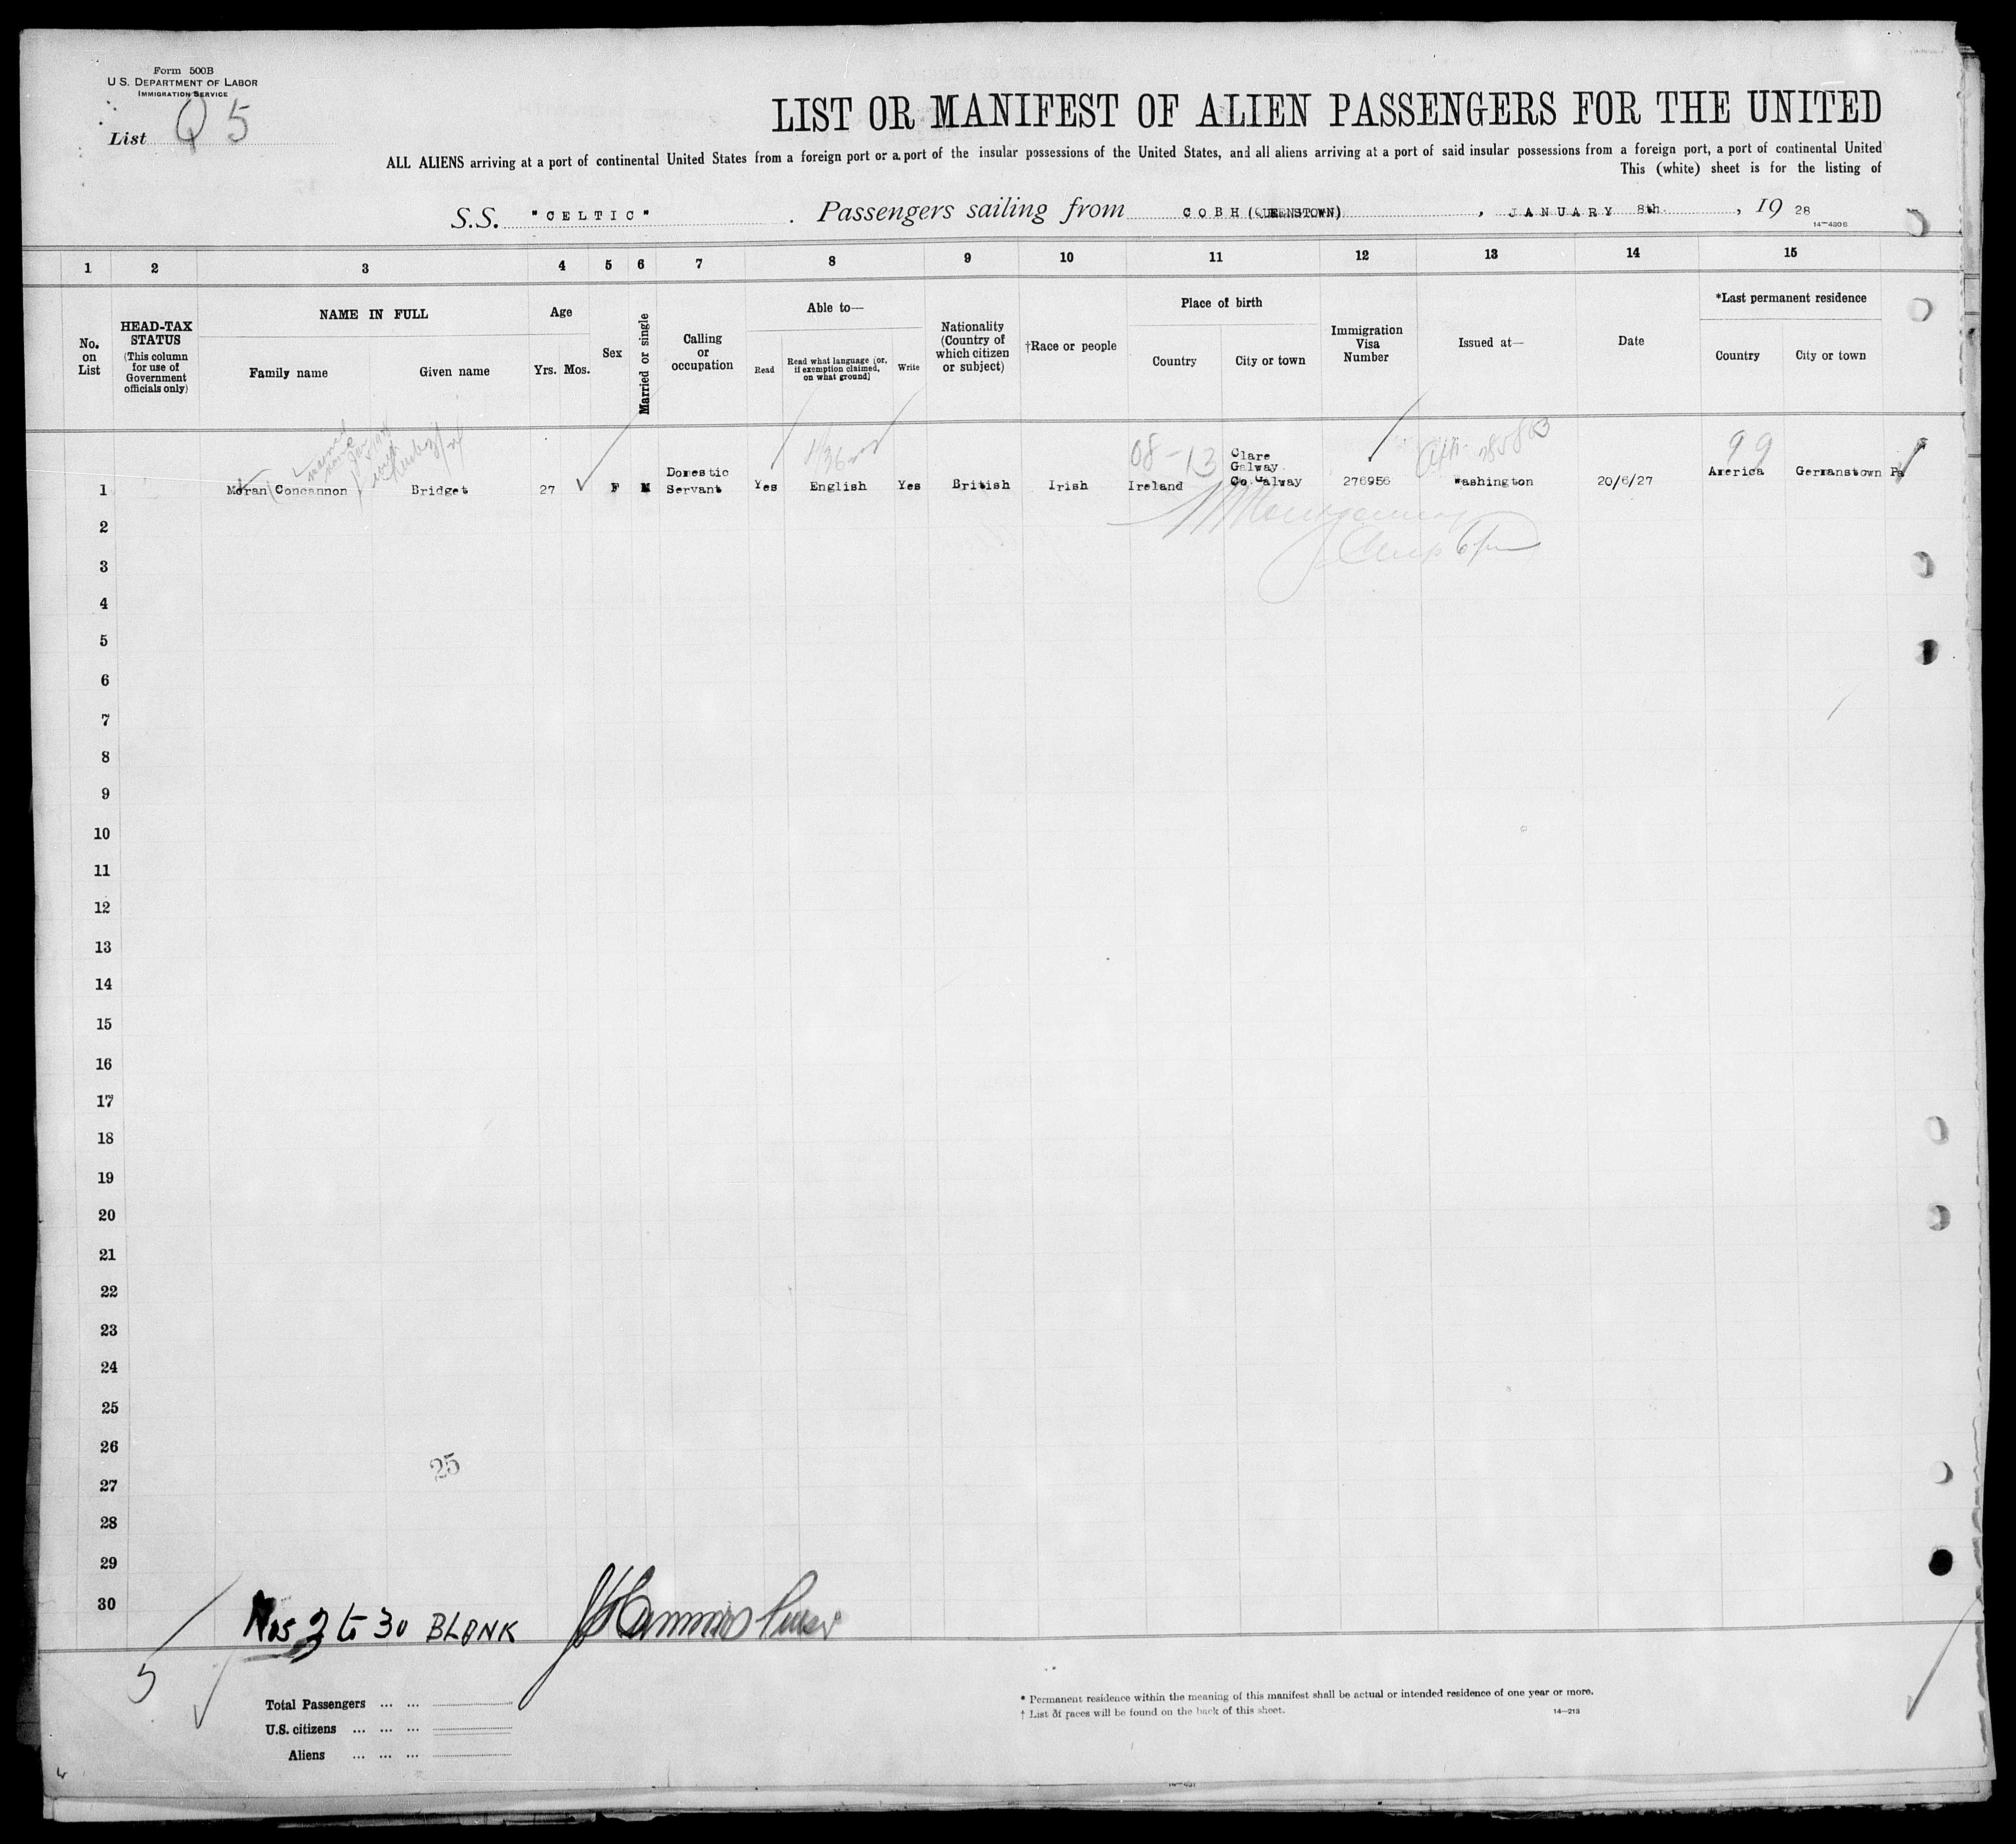 Form 500B
U.S. DEPARTMENT OF LABOR
IMMIGRATION SERVICE
List Q 5
LIST OR MANIFEST OF ALIEN PASSENGERS FOR THE UNITED
ALL ALIENS arriving at a port of continental United States from a foreign port or a port of the insular possessions of the United States, and all aliens arriving at a port of said insular possessions from a foreign port, a port of continental United
This (white) sheet is for the listing of
S.S. "CELTIC" . Passengers sailing from COBH (QUEENSTOWN) , JANUARY 8th. , 19 28
14—4306
1 2 3 4 5 6 7 8 9 10 11 12 13 14 15
No. on List
HEAD-TAX STATUS (This column for use of Government officials only)
NAME IN FULL
Family name
Given name
Age
Yrs. Mos.
Sex
Married or single
Calling or occupation
Able to—
Read
Read what language [or, if exemption claimed, on what ground]
Write
Nationality (Country of which citizen or subject)
†Race or people
Place of birth
Country
City or town
Immigration Visa Number
Issued at—
Date
*Last permanent residence
Country
City or town
married name
08-13
99
1 Moran (Concannon) Bridget 27 F M Domestic Servant Yes English Yes British Irish Ireland Clare Galway Co Galway 276956 Washington 20/6/27 America Germanstown Pa
2
3
4
5
6
7
8
9
10
11
12
13
14
15
16
17
18
19
20
21
22
23
24
25
26
25
27
28
29
30
Nos 2 to 30 BLANK
5
Total Passengers ... ...
U.S. citizens ... ... ...
Aliens ... ... ...
* Permanent residence within the meaning of this manifest shall be actual or intended residence of one year or more.
† List of races will be found on the back of this sheet.
14—213